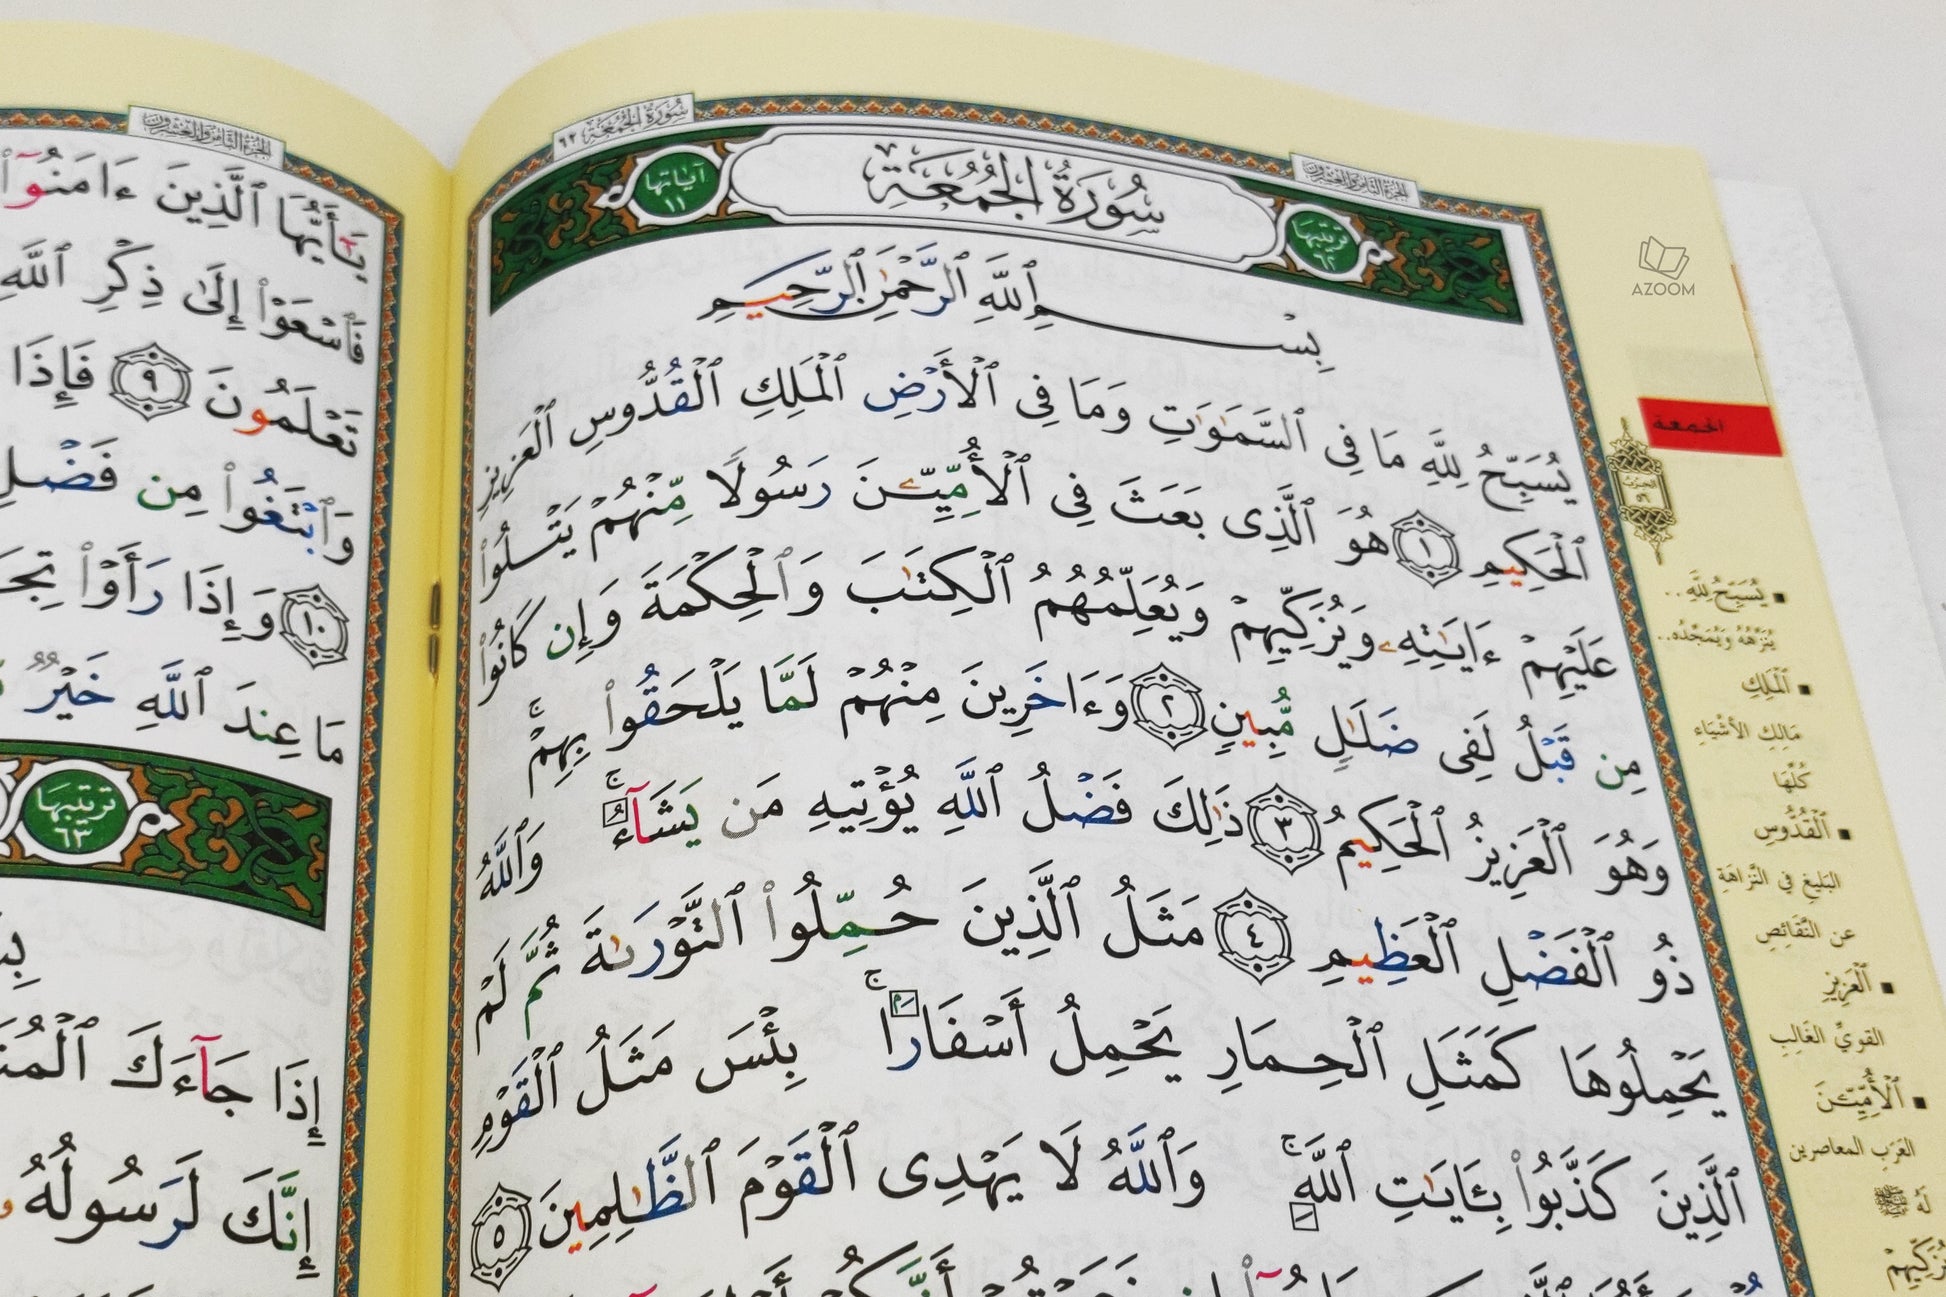 سورة الجمعة ٦٢
الجزء الثامن والعشرون
ترتيبها ٦٢
سُورَةُ الجُمُعَةِ
آياتها ١١
بِسْمِ ٱللَّهِ ٱلرَّحْمَٰنِ ٱلرَّحِيمِ
يُسَبِّحُ لِلَّهِ مَا فِى ٱلسَّمَٰوَٰتِ وَمَا فِى ٱلْأَرْضِ ٱلْمَلِكِ ٱلْقُدُّوسِ ٱلْعَزِيزِ
ٱلْحَكِيمِ ١ هُوَ ٱلَّذِى بَعَثَ فِى ٱلْأُمِّيِّـۧنَ رَسُولًا مِّنْهُمْ يَتْلُوا۟
عَلَيْهِمْ ءَايَٰتِهِۦ وَيُزَكِّيهِمْ وَيُعَلِّمُهُمُ ٱلْكِتَٰبَ وَٱلْحِكْمَةَ وَإِن كَانُوا۟
مِن قَبْلُ لَفِى ضَلَٰلٍ مُّبِينٍ ٢ وَءَاخَرِينَ مِنْهُمْ لَمَّا يَلْحَقُوا۟ بِهِمْ ۚ
وَهُوَ ٱلْعَزِيزُ ٱلْحَكِيمُ ٣ ذَٰلِكَ فَضْلُ ٱللَّهِ يُؤْتِيهِ مَن يَشَآءُ ۚ وَٱللَّهُ
ذُو ٱلْفَضْلِ ٱلْعَظِيمِ ٤ مَثَلُ ٱلَّذِينَ حُمِّلُوا۟ ٱلتَّوْرَىٰةَ ثُمَّ لَمْ
يَحْمِلُوهَا كَمَثَلِ ٱلْحِمَارِ يَحْمِلُ أَسْفَارًۢا ۚ بِئْسَ مَثَلُ ٱلْقَوْمِ
ٱلَّذِينَ كَذَّبُوا۟ بِـَٔايَٰتِ ٱللَّهِ ۚ وَٱللَّهُ لَا يَهْدِى ٱلْقَوْمَ ٱلظَّٰلِمِينَ ٥
AZOOM
الجمعة
الحزب ٥٦
يُسَبِّحُ لِلَّهِ..
يُنَزِّهُهُ وَيُمَجِّدُه..
ٱلْمَلِكِ
مَالِكِ الأَشْيَاءِ
كُلِّهَا
ٱلْقُدُّوسِ
البَلِيغِ فِي النَّزَاهَةِ
عن النَّقَائِصِ
ٱلْعَزِيزِ
القويِّ الغَالِبِ
ٱلْأُمِّيِّـۧنَ
العَرَبِ المعاصرين
لَهُ ﷺ
يُزَكِّيهِمْ
الجزء الثامن والعشرون
يَٰٓأَيُّهَا ٱلَّذِينَ ءَامَنُوٓا۟
فَٱسْعَوْا۟ إِلَىٰ ذِكْرِ ٱللَّهِ
تَعْلَمُونَ ٩ فَإِذَا
وَٱبْتَغُوا۟ مِن فَضْلِ
١٠ وَإِذَا رَأَوْا۟
مَا عِندَ ٱللَّهِ خَيْرٌ
ترتيبها ٦٣
إِذَا جَآءَكَ
إِنَّكَ لَرَسُولُهُۥ